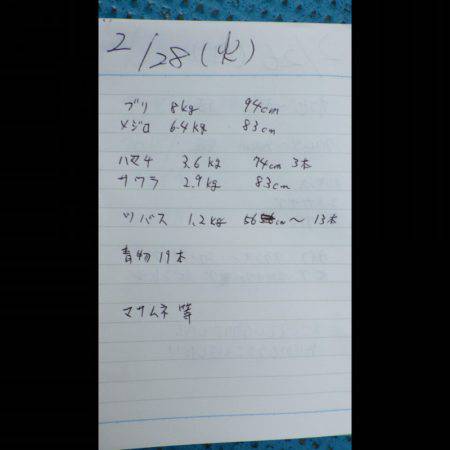 2/28(火)
ブリ 8kg 94cm
メジロ 6.4kg 83cm
ハマチ 3.6kg 74cm 3本
サワラ 2.9kg 83cm
ツバス 1.2kg 56cm〜 13本
青物 19本
マサムネ 等